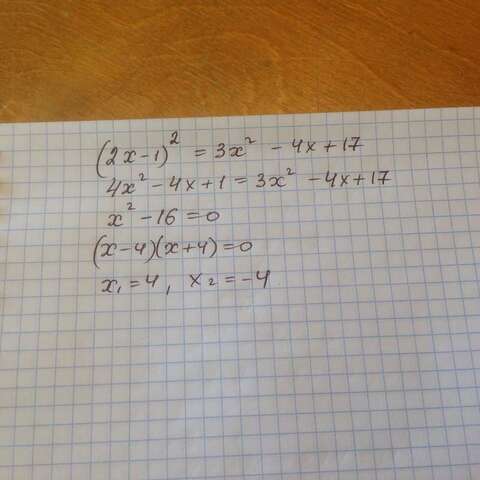 (2x-1)² = 3x² - 4x + 17
4x² - 4x + 1 = 3x² - 4x + 17
x² - 16 = 0
(x-4)(x+4) = 0
x₁ = 4, x₂ = -4